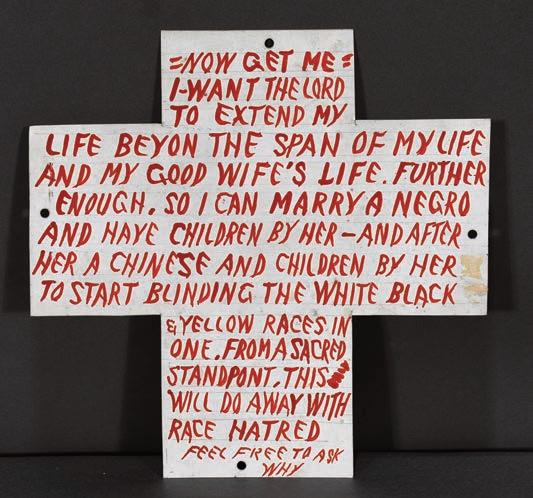 =NOW GET ME=
I-WANT THE LORD
TO EXTEND MY
LIFE BEYON THE SPAN OF MY LIFE
AND MY GOOD WIFE'S LIFE. FURTHER
ENOUGH. SO I CAN MARRY A NEGRO
AND HAVE CHILDREN BY HER-AND AFTER
HER A CHINESE AND CHILDREN BY HER
TO START BLINDING THE WHITE BLACK
& YELLOW RACES IN
ONE. FROM A SACRED
STANDPONT. THIS
WILL DO AWAY WITH
RACE HATRED
FEEL FREE TO ASK
WHY